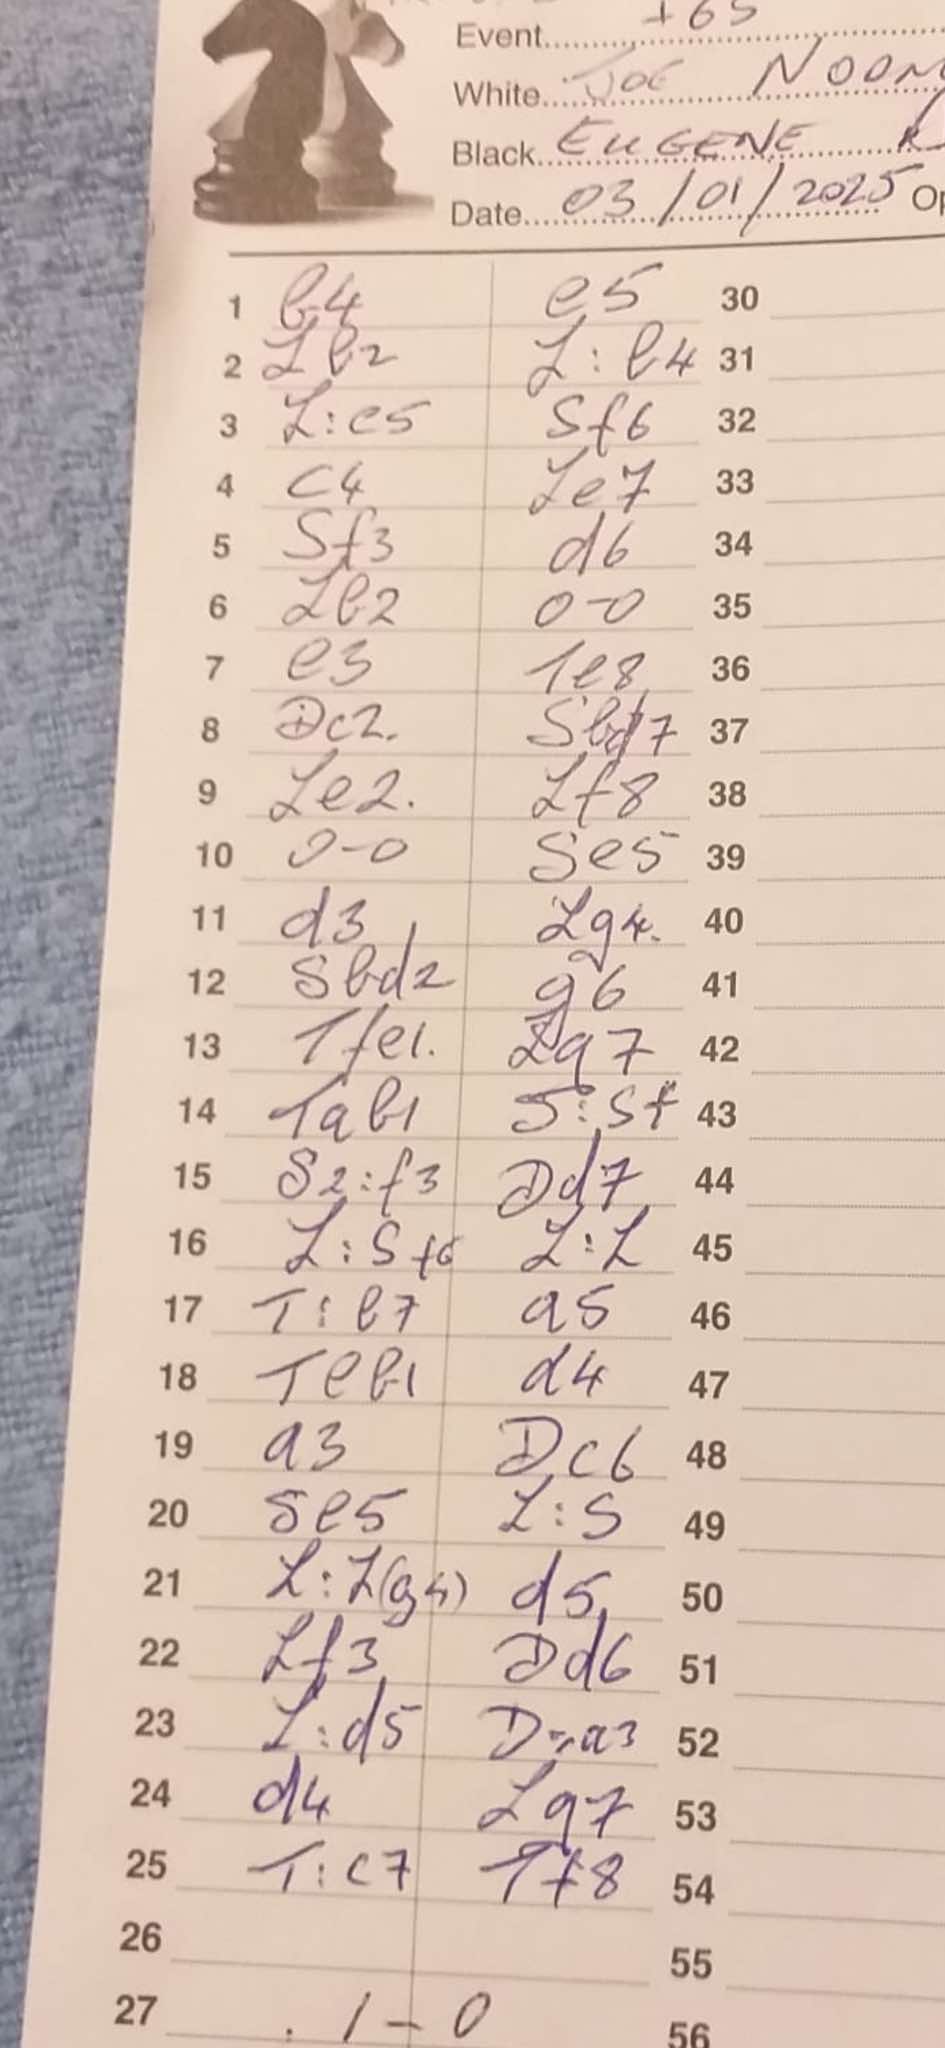 Event +65
White Joe NOON
Black EUGENE
Date 03/01/2025 Op
1 b4 e5 30
2 Lb2 L:b4 31
3 L:e5 Sf6 32
4 c4 Le7 33
5 Sf3 d6 34
6 Lb2 0-0 35
7 e3 Te8 36
8 Dc2. Sbd7 37
9 Le2. Lf8 38
10 0-0 Se5 39
11 d3 Lg4. 40
12 Sbd2 g6 41
13 Tfe1. Lg7 42
14 Tab1 S:Sf 43
15 S2:f3 Dd7 44
16 L:Sf6 L:L 45
17 T:b7 a5 46
18 Teb1 d4 47
19 a3 Dc6 48
20 Se5 L:S 49
21 L:L(g4) d5 50
22 Lf3 Dd6 51
23 L:d5 D:a3 52
24 d4 Lg7 53
25 T:c7 Tf8 54
26 55
27 1-0 56